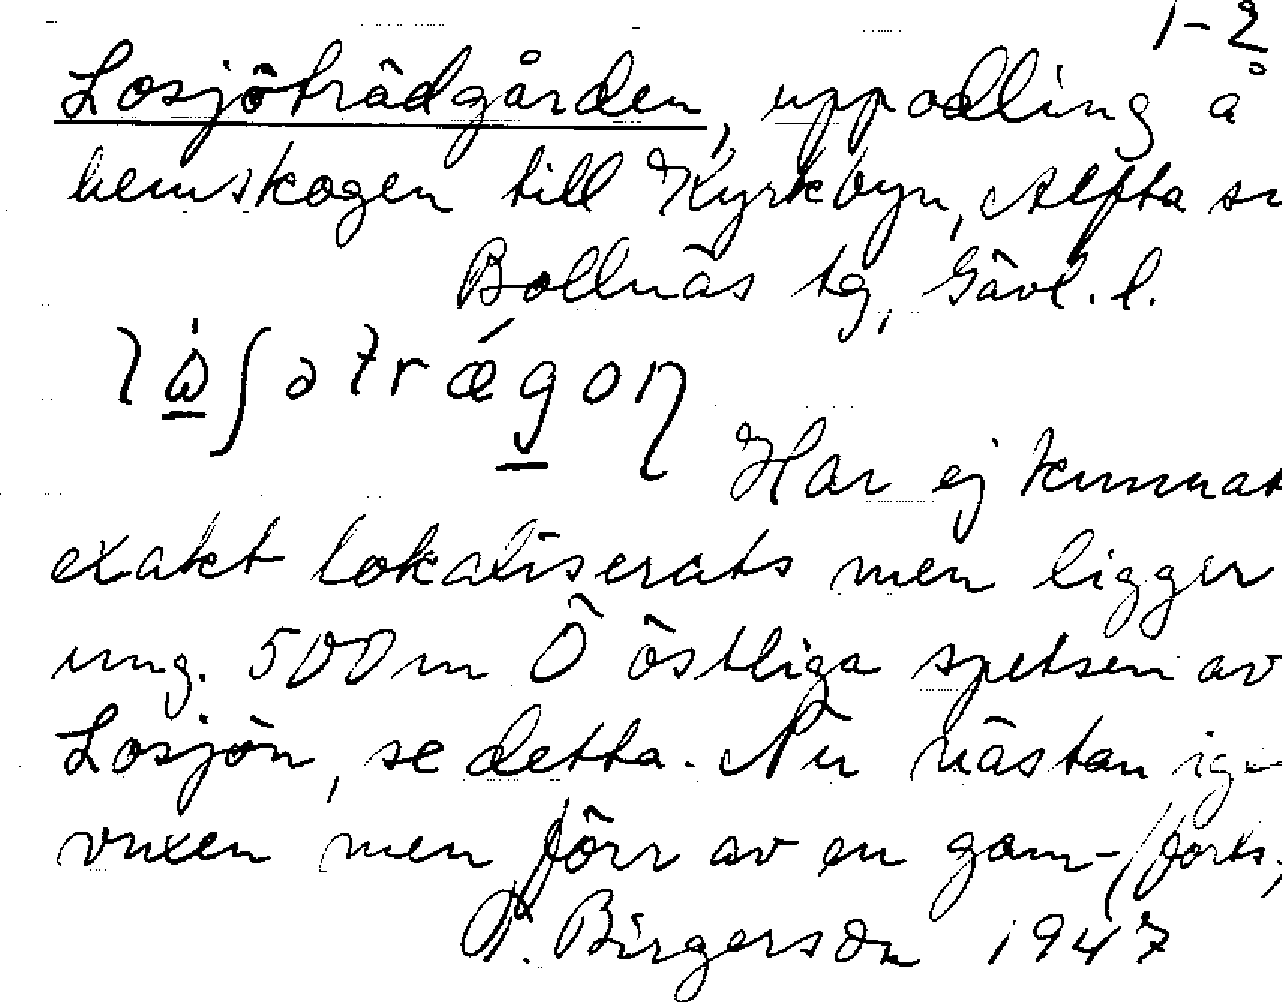 1-2
Losjöträdgården, uppodling å
hemskogen till Kyrkbyn, Alfta sn
Bollnäs tg, Gävl. l.
Har ej kunnat
exakt lokaliserats men ligger
ung. 500m Ö östliga spetsen av
Losjön, se detta. Nu nästan ig-
vuxen men förr av en gam- (forts.)
Birgerson 1947